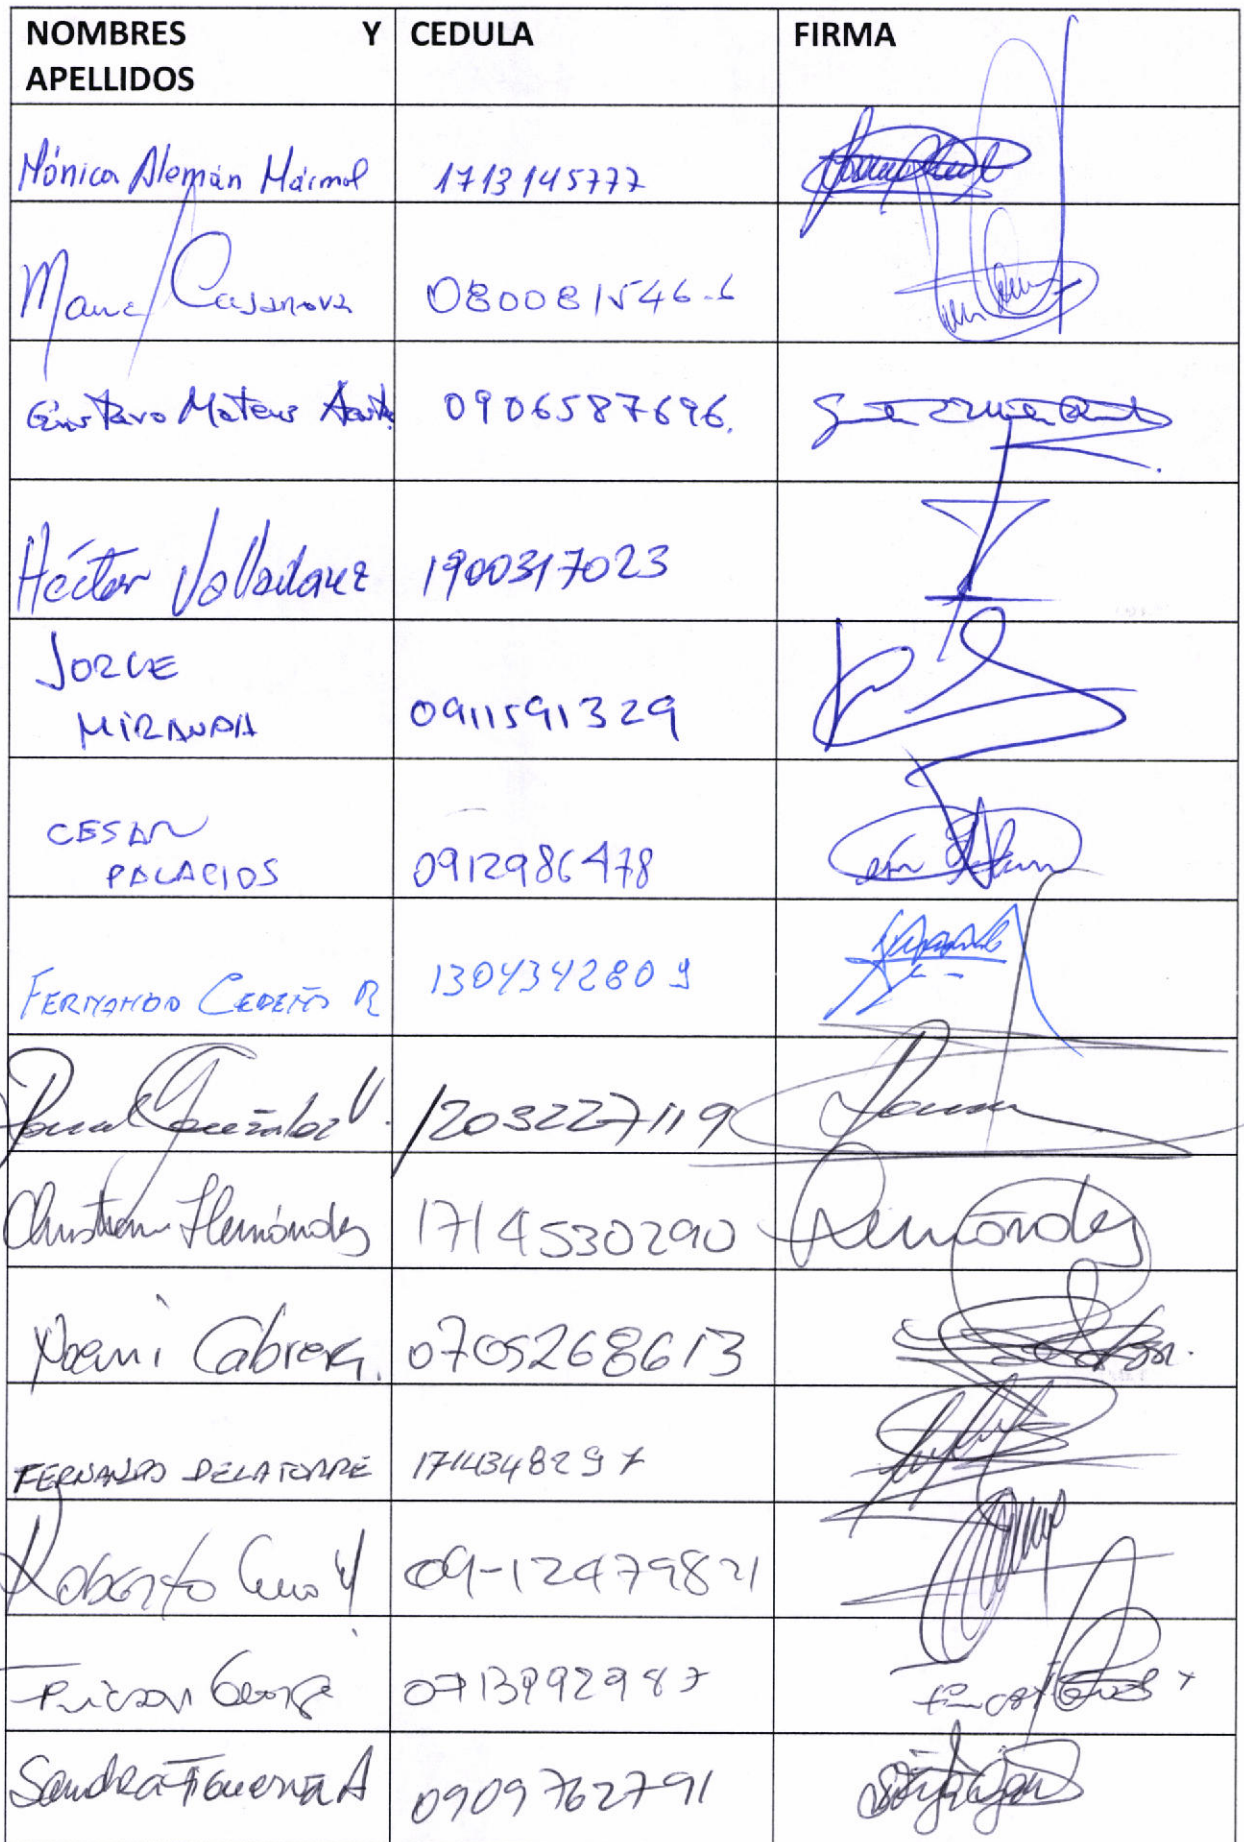 NOMBRES Y APELLIDOS CEDULA FIRMA
Mónica Alemán Mármol 1713145777
Casanova 080081546-6
Gustavo Mateus 0906587696.
Héctor Valladarez 1900317023
JORGE
MIRANDA 0911591329
CESAR
PALACIOS 0912986478
FERNANDO CEDEÑO R 1304342809
González V. 1203227119
Christian Hernández 1714530290 Hernández
Noemi Cabrera. 0705268613
FERNANDO DELATORRE 1714348297
Roberto 09-12479821
0713992987
Sandra Figueroa A 0909762791